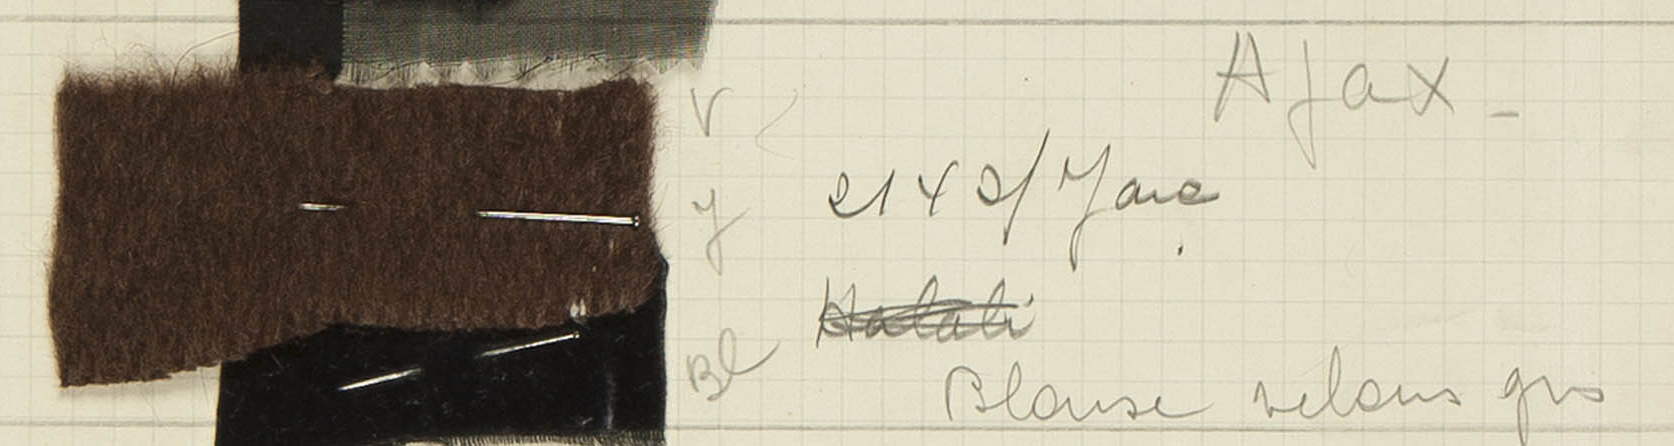 Ajax -
V
J 2142/ Jane
Halali
Bl Blouse velours gris